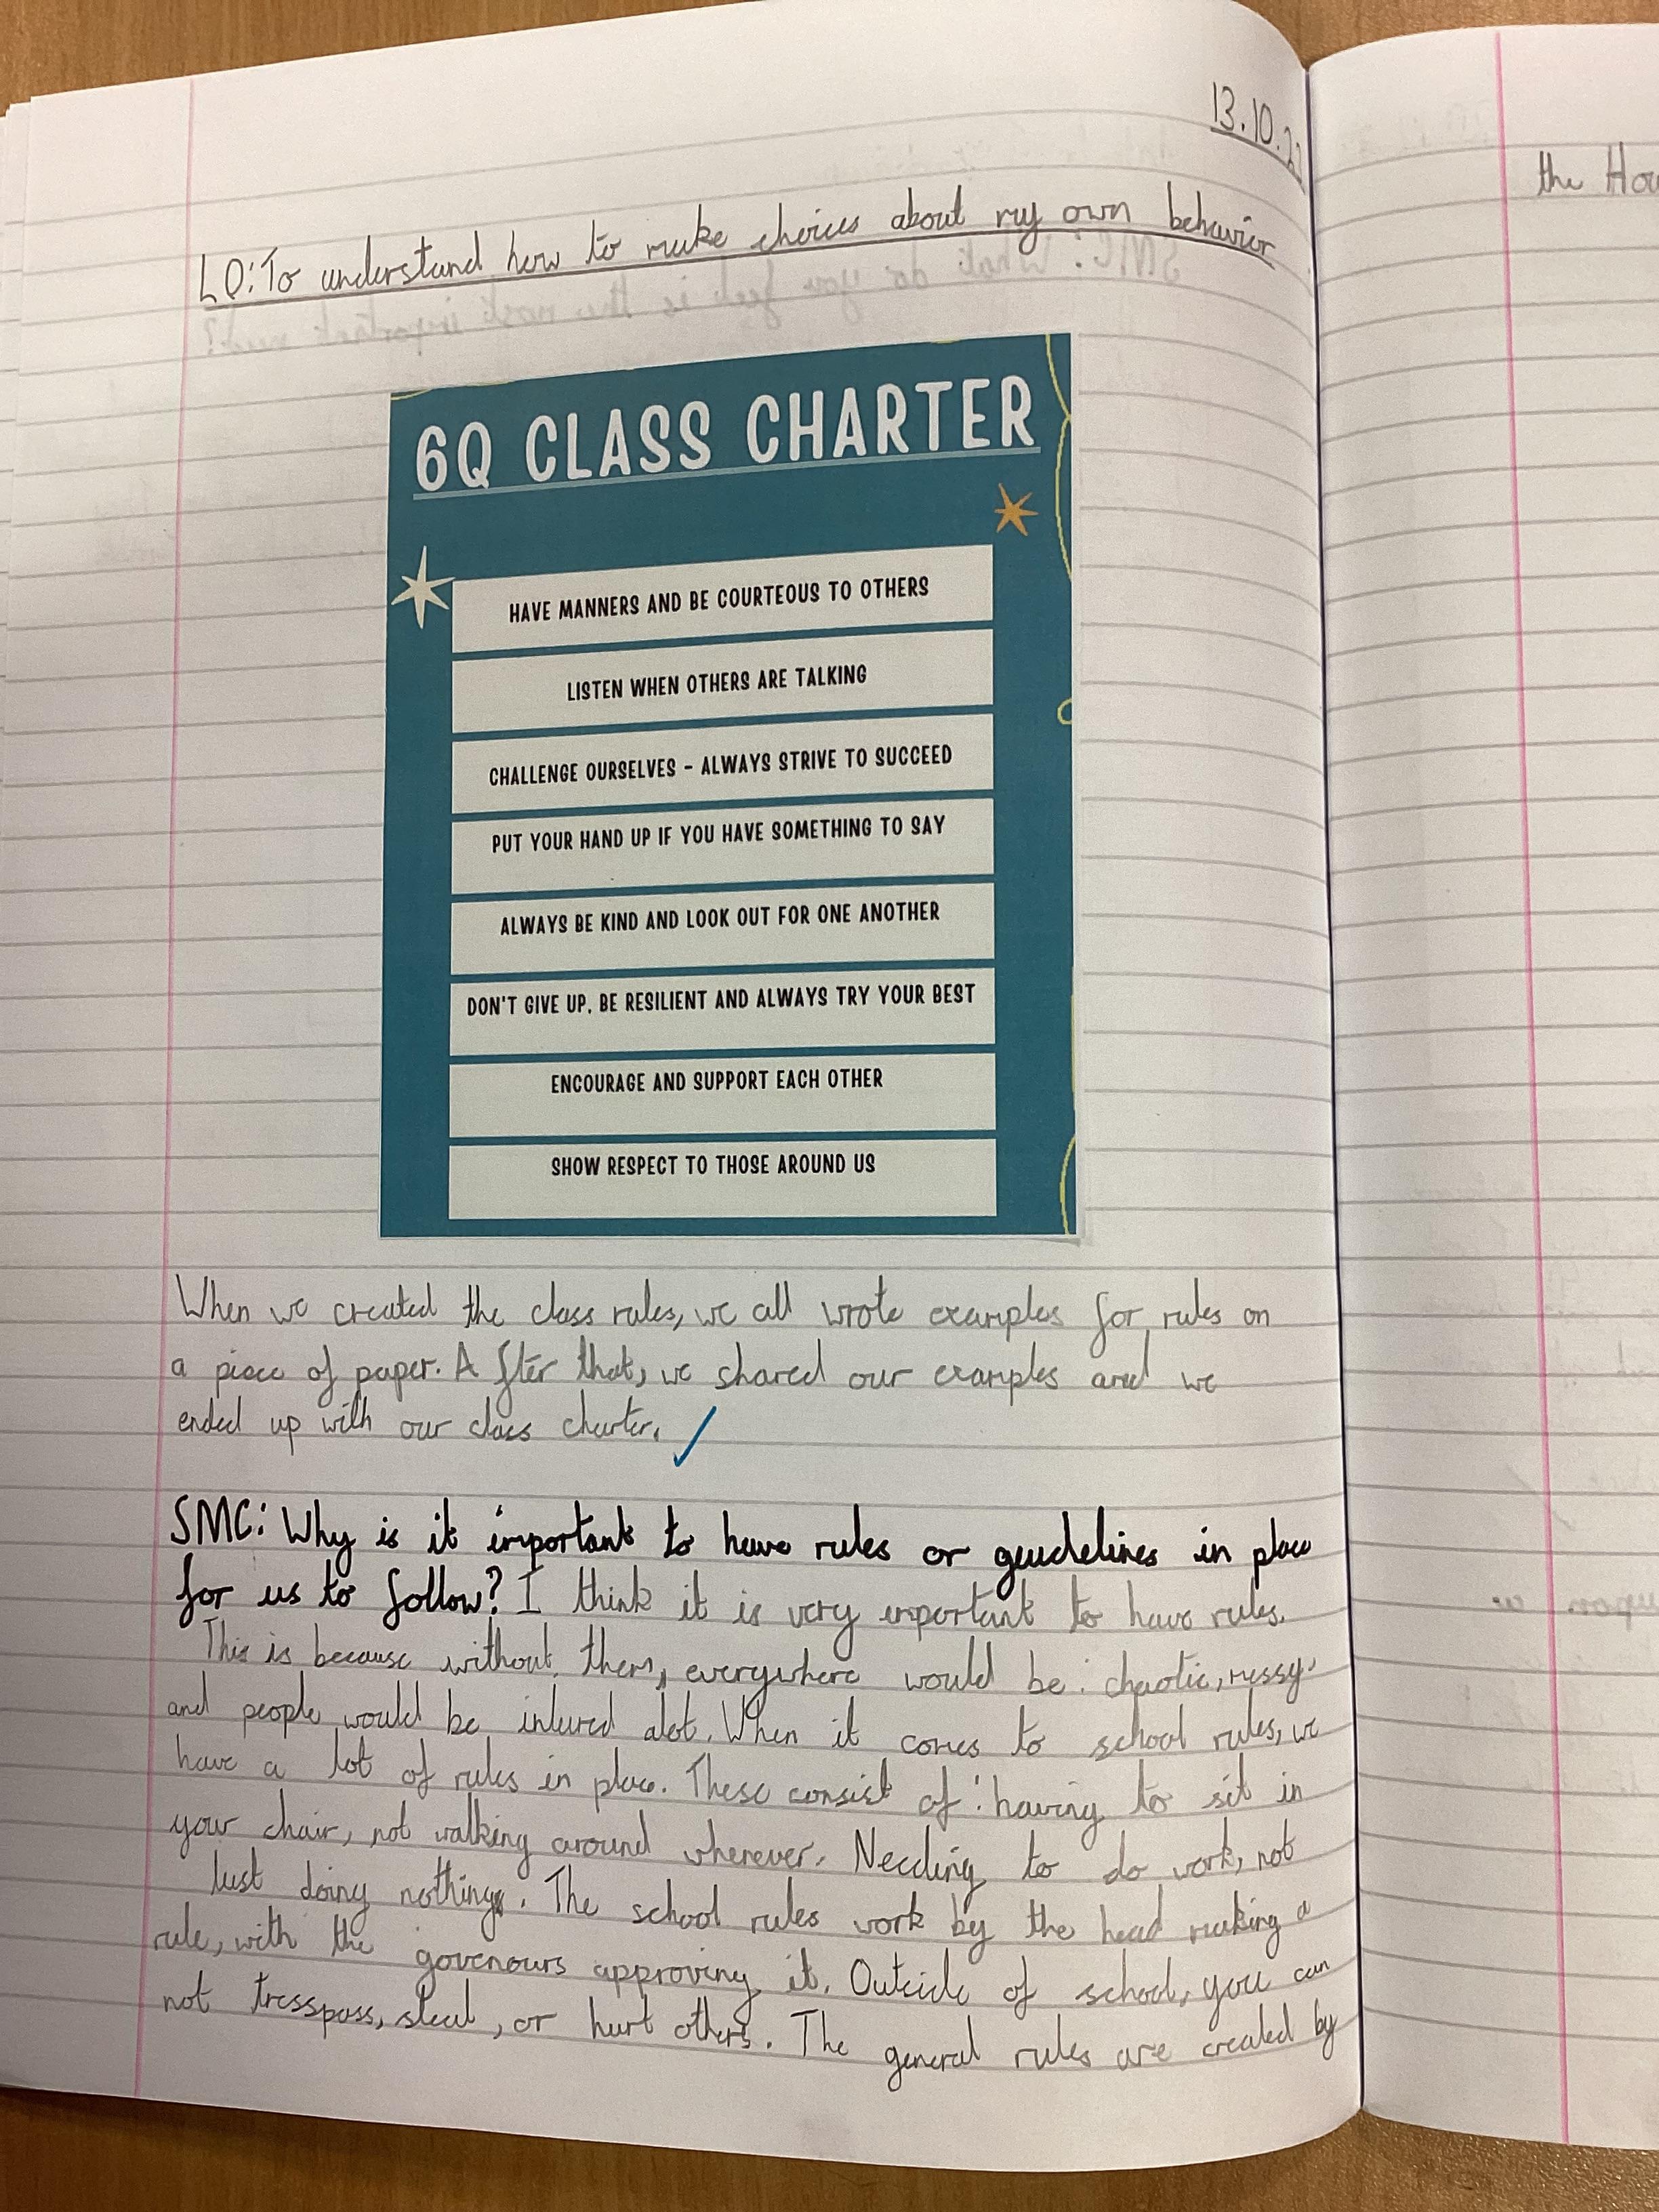 13.10.22
LO: To understand how to make choices about my own behavior
6Q CLASS CHARTER
HAVE MANNERS AND BE COURTEOUS TO OTHERS
LISTEN WHEN OTHERS ARE TALKING
CHALLENGE OURSELVES - ALWAYS STRIVE TO SUCCEED
PUT YOUR HAND UP IF YOU HAVE SOMETHING TO SAY
ALWAYS BE KIND AND LOOK OUT FOR ONE ANOTHER
DON'T GIVE UP, BE RESILIENT AND ALWAYS TRY YOUR BEST
ENCOURAGE AND SUPPORT EACH OTHER
SHOW RESPECT TO THOSE AROUND US
When we created the class rules, we all wrote examples for rules on
a piece of paper. After that, we shared our examples and we
ended up with our class charter.
SMC: Why is it important to have rules or guidelines in place
for us to follow? I think it is very important to have rules.
This is because without them, everywhere would be: chaotic, messy
and people would be injured alot. When it comes to school rules, we
have a lot of rules in place. These consist of: having to sit in
your chair, not walking around wherever. Needing to do work, not
just doing nothing. The school rules work by the head making a
rule, with the govenours approving it. Outside of school, you can
not tresspass, steal, or hurt others. The general rules are created by
the